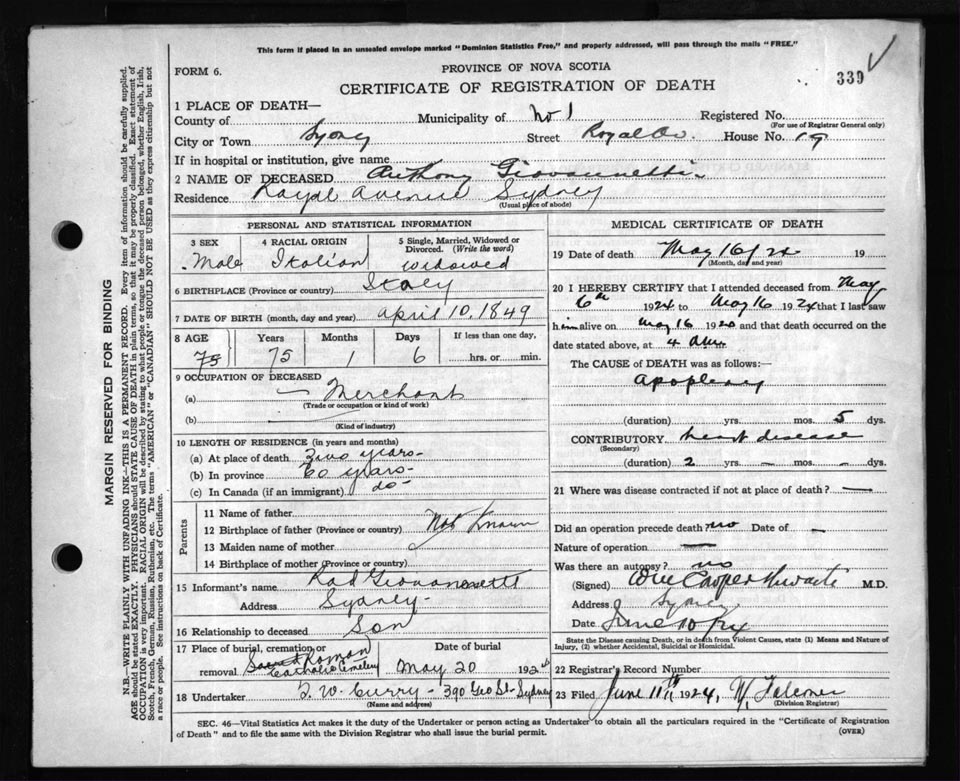 This form if placed in an unsealed envelope marked "Dominion Statistics Free," and properly addressed, will pass through the mails "FREE."
339
FORM 6.
PROVINCE OF NOVA SCOTIA
CERTIFICATE OF REGISTRATION OF DEATH
1 PLACE OF DEATH—
County of Municipality of No 1 Registered No.
(For use of Registrar General only)
City or Town Sydney Street Royal Av. House No. 19
If in hospital or institution, give name
2 NAME OF DECEASED Anthony Giovannetti
Residence Royal Avenue Sydney
(Usual place of abode)
PERSONAL AND STATISTICAL INFORMATION
3 SEX 4 RACIAL ORIGIN 5 Single, Married, Widowed or Divorced. (Write the word)
Male Italian widowed
6 BIRTHPLACE (Province or country) Italy
7 DATE OF BIRTH (month, day and year) April 10, 1849
8 AGE Years Months Days If less than one day,
75 75 1 6 hrs. or min.
9 OCCUPATION OF DECEASED
(a) Merchant
(Trade or occupation or kind of work)
(b)
(Kind of industry)
10 LENGTH OF RESIDENCE (in years and months)
(a) At place of death Two years
(b) In province 60 years
(c) In Canada (if an immigrant) do
Parents
11 Name of father
12 Birthplace of father (Province or country) Not Known
13 Maiden name of mother
14 Birthplace of mother (Province or country)
15 Informant's name
Address Sydney
16 Relationship to deceased Son
17 Place of burial, cremation or removal Date of burial
Roman Catholic Cemetery May 20 192
18 Undertaker F. W. Curry - 390 Geo St - Sydney
(Name and address)
MEDICAL CERTIFICATE OF DEATH
19 Date of death May 16/24 19
(Month, day and year)
20 I HEREBY CERTIFY that I attended deceased from May
6th 1924 to May 16 1924 that I last saw
him alive on May 16 1924 and that death occurred on the
date stated above, at 4 am
The CAUSE OF DEATH was as follows:
apoplexy
(duration) yrs. mos. 5 dys.
CONTRIBUTORY heart disease
(Secondary)
(duration) 2 yrs. — mos. — dys.
21 Where was disease contracted if not at place of death? —
Did an operation precede death? no Date of —
Nature of operation —
Was there an autopsy? no
(Signed) M.D.
Address Sydney
Date June 10/24
State the Disease causing Death, or in death from Violent Causes, state (1) Means and Nature of Injury, (2) whether Accidental, Suicidal or Homicidal.
22 Registrar's Record Number
23 Filed June 11th 1924, W. Falconer
(Division Registrar)
SEC. 46—Vital Statistics Act makes it the duty of the Undertaker or person acting as Undertaker to obtain all the particulars required in the "Certificate of Registration
of Death" and to file the same with the Division Registrar who shall issue the burial permit.
(OVER)
MARGIN RESERVED FOR BINDING
N.B.—WRITE PLAINLY WITH UNFADING INK—THIS IS A PERMANENT RECORD. Every item of information should be carefully supplied.
AGE should be stated EXACTLY. PHYSICIANS should STATE CAUSE OF DEATH in plain terms, so that it may be properly classified. Exact statement of
OCCUPATION is very important. RACIAL ORIGIN will be described by stating to what people or tongue the deceased person belonged, whether English, Irish,
Scotch, French, German, Russian, Ruthenian, etc. The terms "AMERICAN" or "CANADIAN" SHOULD NOT BE USED as they express citizenship but not
a race or people. See instructions on back of Certificate.